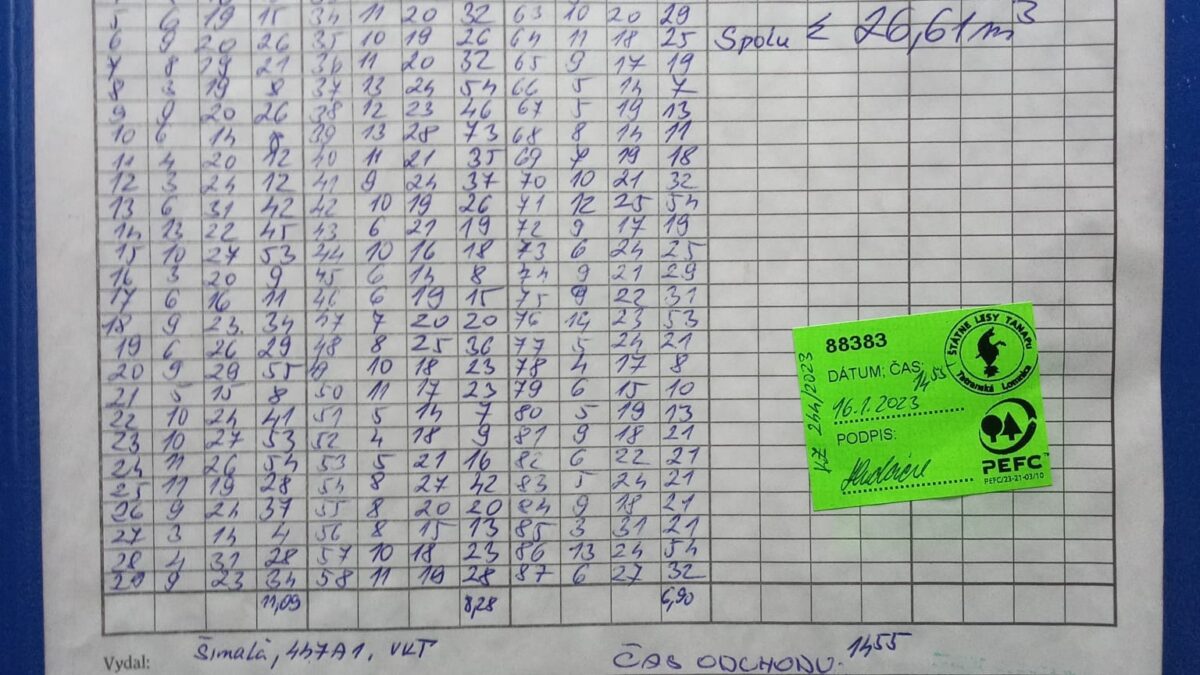 5 6 19 15 34 11 20 32 63 10 20 29
6 9 20 26 35 10 19 26 64 11 18 25 Spolu = 26,61 m³
7 8 19 21 36 11 20 32 65 9 17 19
8 3 19 8 37 13 24 54 66 5 14 7
9 9 20 26 38 12 23 46 67 5 19 13
10 6 14 8 39 13 28 73 68 8 14 11
11 4 20 12 40 11 21 35 69 7 19 18
12 3 24 12 41 9 24 37 70 10 21 32
13 6 31 42 42 10 19 26 71 12 25 54
14 13 22 45 43 6 21 19 72 9 17 19
15 10 27 53 44 10 16 18 73 6 24 25
16 3 20 9 45 6 14 8 74 9 21 29
17 6 16 11 46 6 19 15 75 9 22 31
18 9 23 34 47 7 20 20 76 14 23 53
19 6 26 29 48 8 25 36 77 5 24 21
20 9 29 55 49 10 18 23 78 4 17 8
21 5 15 8 50 11 17 23 79 6 15 10
22 10 24 41 51 5 14 7 80 5 19 13
23 10 27 53 52 4 18 9 81 9 18 21
24 11 26 54 53 5 21 16 82 6 22 21
25 11 19 28 54 8 27 42 83 5 24 21
26 9 24 37 55 8 20 20 84 9 18 21
27 3 14 4 56 8 15 13 85 3 31 21
28 4 31 28 57 10 18 23 86 13 24 54
29 9 23 34 58 11 19 28 87 6 27 32
11,09 8,28 6,90
88383
ŠTÁTNE LESY TANAPu
Tatranská Lomnica
DÁTUM, ČAS: 1455
16.1.2023
PODPIS:
KŽ 244/2023
PEFC™
PEFC/23-21-03/10
Vydal: Šimalá, 447A1, VKT
ČAS ODCHODU: 1455